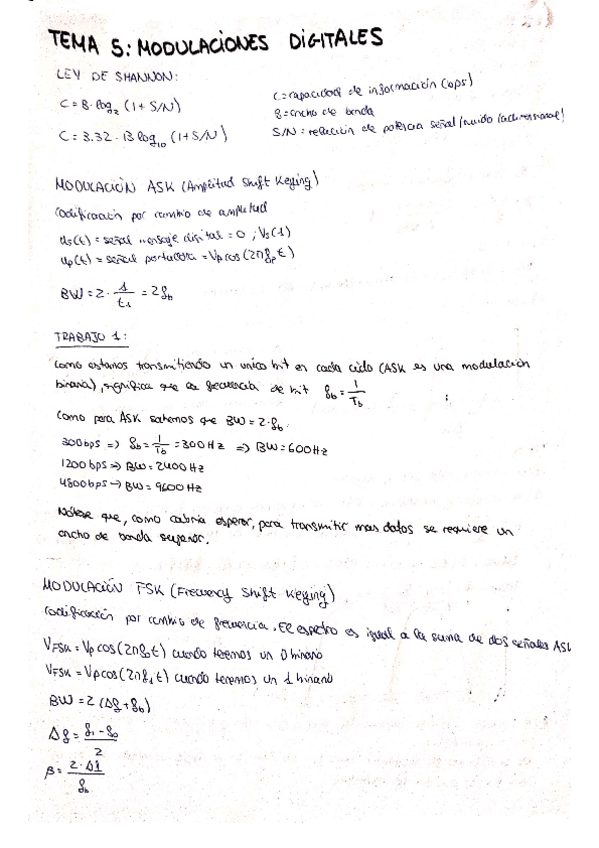 TEMA 5: MODULACIONES DIGITALES
LEY DE SHANNON:
C = B · log₂ (1 + S/N)
C = capacidad de información (bps)
B = ancho de banda
C = 3.32 · B log₁₀ (1 + S/N)
S/N = relación de potencia señal/ruido (adimensional)
MODULACIÓN ASK (Amplitud Shift Keying)
Codificación por cambio de amplitud
us(t) = señal mensaje digital = 0 ; Vs(1)
up(t) = señal portadora = Vp cos (2π fp t)
BW = 2 · 1/t₁ = 2fb
TRABAJO 1:
Como estamos transmitiendo un unico bit en cada ciclo (ASK es una modulación
binaria), significa que la frecuencia de bit fb = 1/Tb
Como para ASK sabemos que BW = 2 · fb
300 bps => fb = 1/Tb = 300 Hz => BW = 600 Hz
1200 bps => BW = 2400 Hz
4800 bps -> BW = 9600 Hz
Nótese que, como cabría esperar, para transmitir mas datos se requiere un
ancho de banda superior.
MODULACIÓN FSK (Frecuency Shift Keying)
Codificación por cambio de frecuencia. El espectro es igual a la suma de dos señales ASK
VFSK = Vp cos (2π f₀ t) cuando tenemos un 0 binario
VFSK = Vp cos (2π f₁ t) cuando tenemos un 1 binario
BW = 2 (Δf + fb)
Δf = f₁ - f₀ / 2
β = 2 · Δf / fb